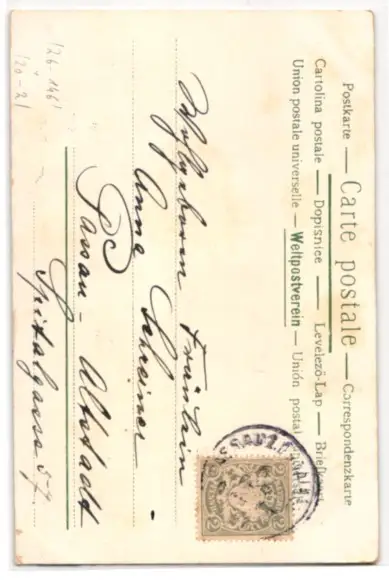 Postkarte — Carte postale — Correspondenzkarte
Cartolina postale — Dopisnice — Levelező-Lap —
Union postale universelle — Weltpostverein — Unión postal
Wohlgeboren Fräulein
Anna Schreiner.
Passau - Altstadt
Spitalgasse 57
2 2
2 2
126-1461